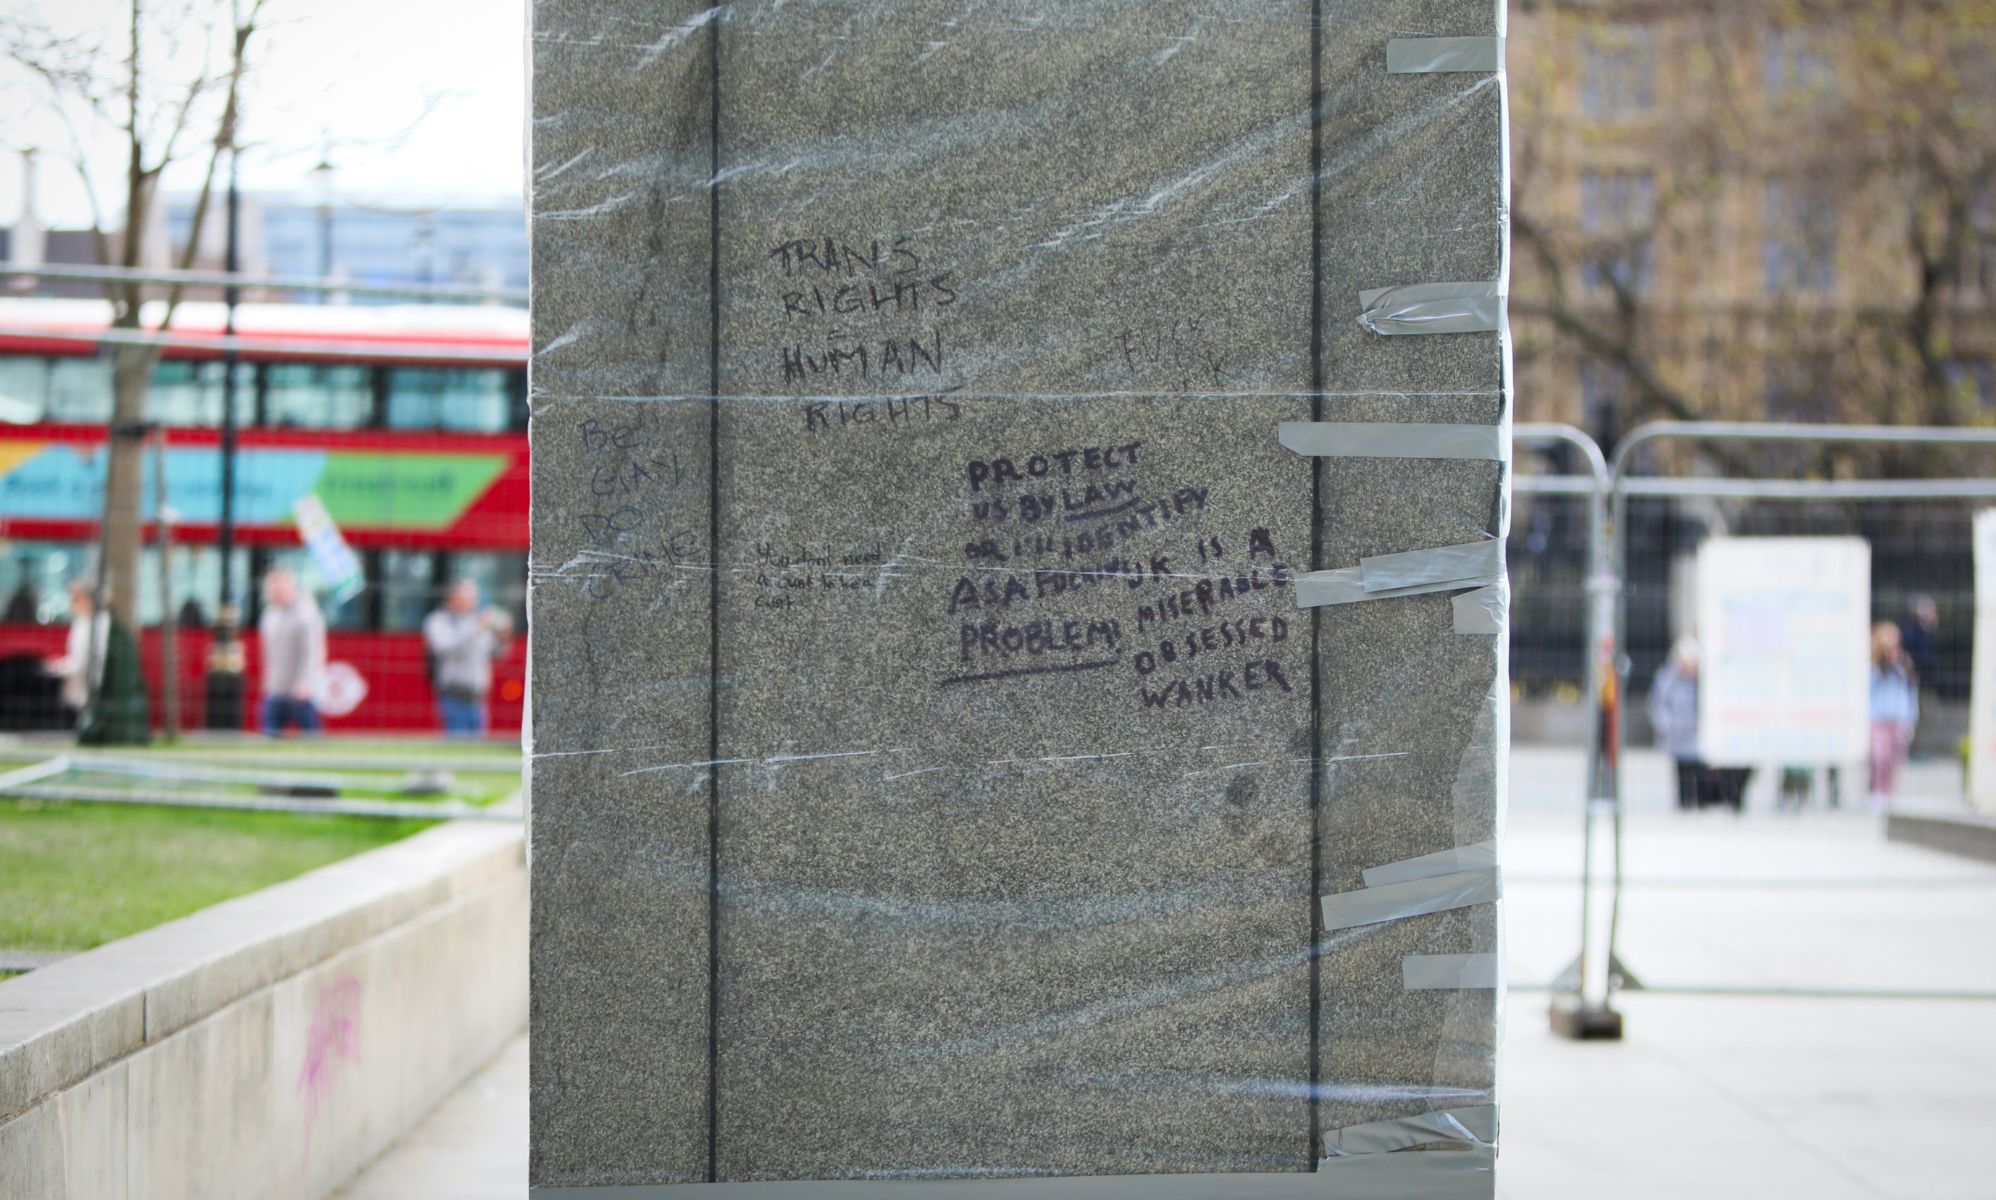 TRANS
RIGHTS
=
HUMAN
RIGHTS
FUCK
BE
GAY
DO
CRIME
You don't need
a cunt to be a
cunt
PROTECT
US BY LAW
OR I'LL IDENTIFY
AS A FUCKING
PROBLEM!
JK IS A
MISERABLE
OBSESSED
WANKER